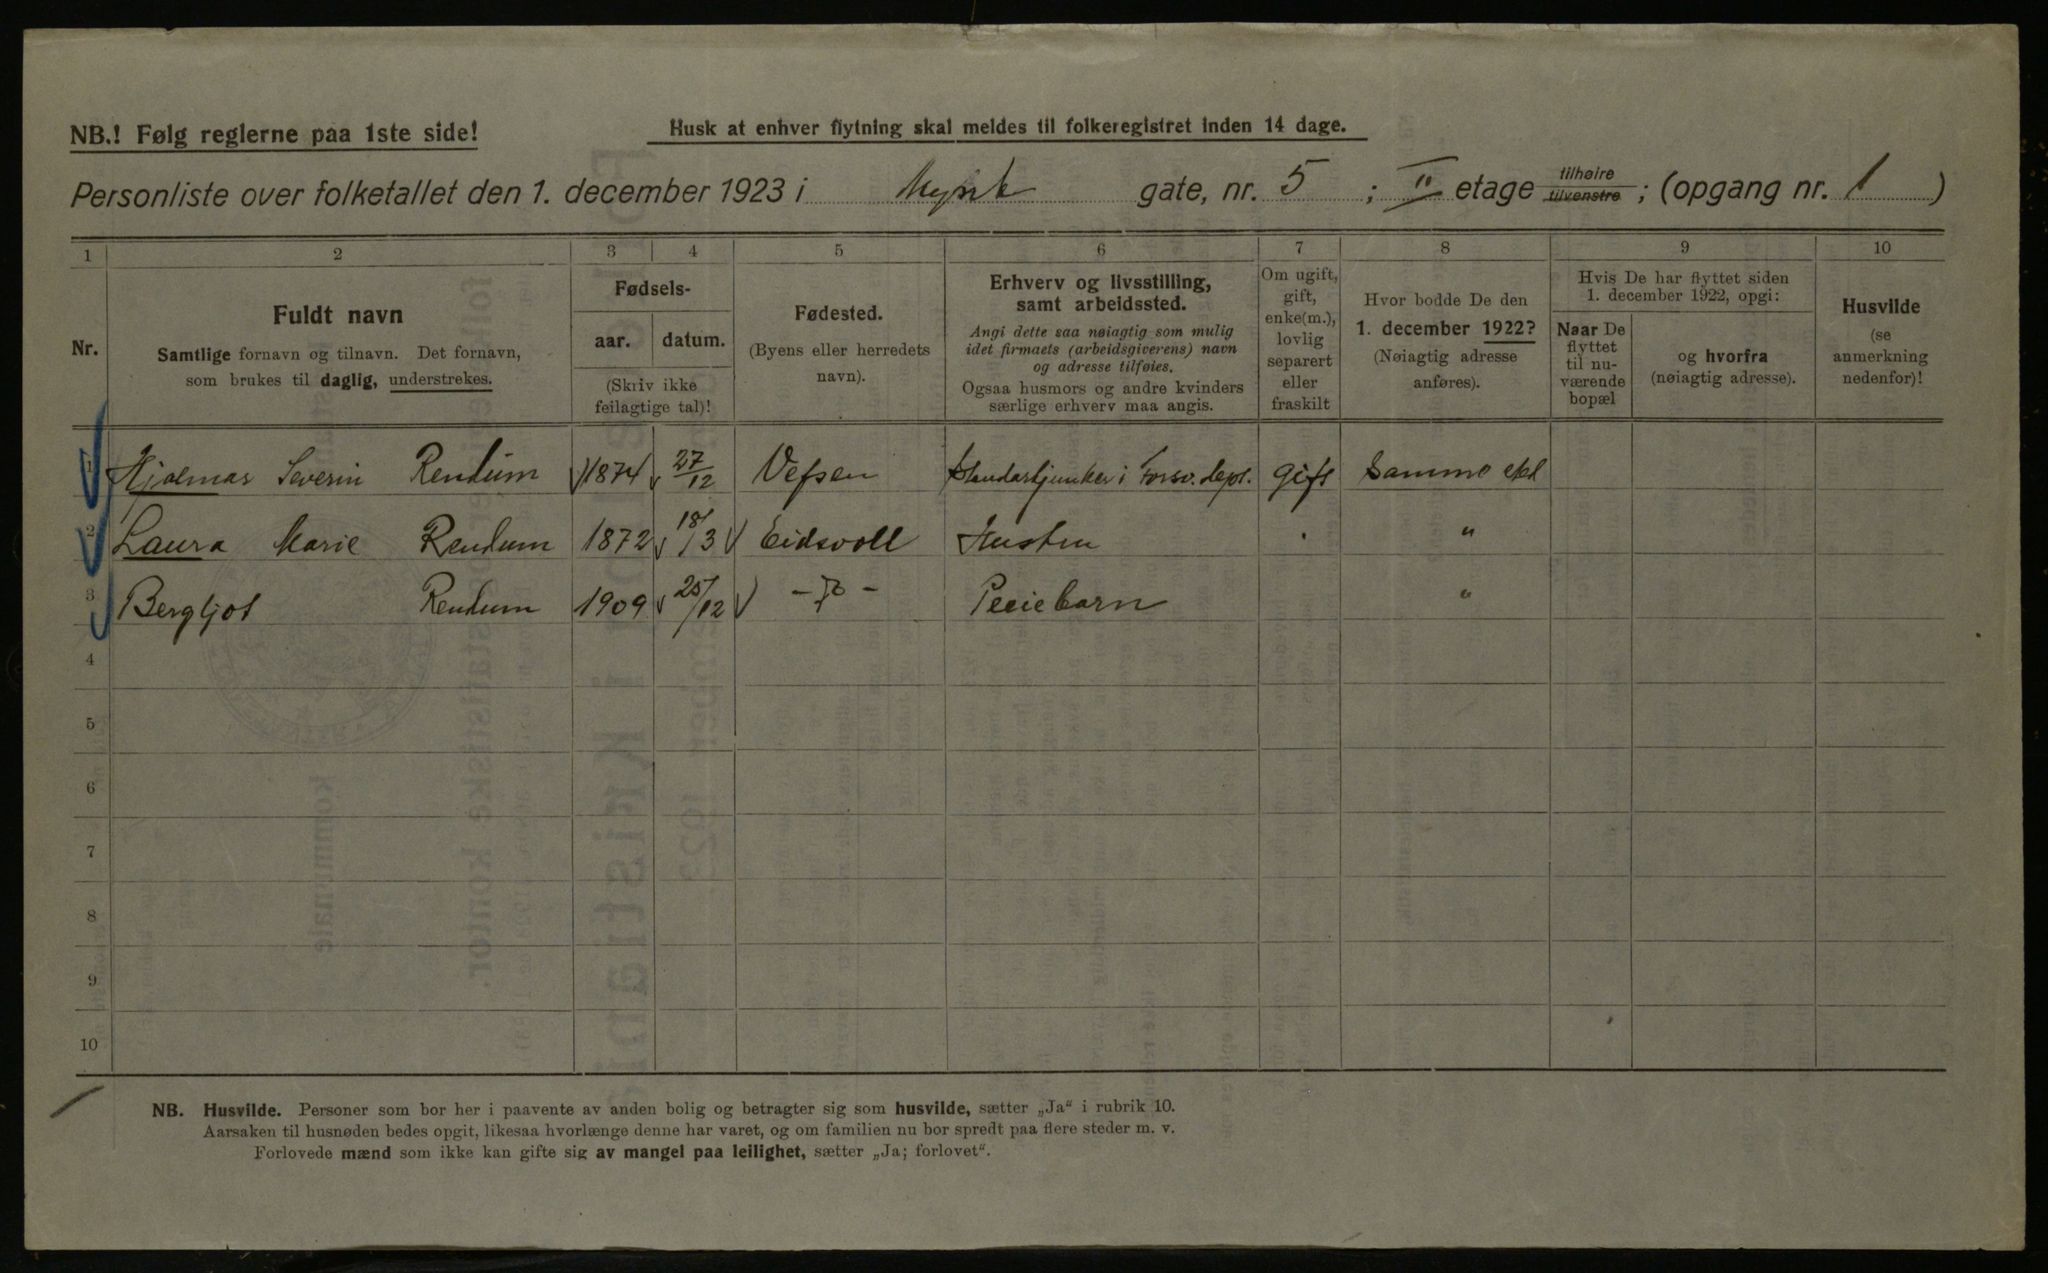 NB.! Følg reglerne paa 1ste side!
Husk at enhver flytning skal meldes til folkeregistret inden 14 dage.
Personliste over folketallet den 1. december 1923 i Mynt gate, nr. 5 ; II etage tilhøire tilvenstre ; (opgang nr. 1 )
1 2 3 4 5 6 7 8 9 10
Nr.
Fuldt navn
Samtlige fornavn og tilnavn. Det fornavn,
som brukes til daglig, understrekes.
Fødsels-
aar. datum.
(Skriv ikke
feilagtige tal)!
Fødested.
(Byens eller herredets
navn).
Erhverv og livsstilling,
samt arbeidssted.
Angi dette saa nøiagtig som mulig
idet firmaets (arbeidsgiverens) navn
og adresse tilføies.
Ogsaa husmors og andre kvinders
særlige erhverv maa angis.
Om ugift,
gift,
enke(m.),
lovlig
separert
eller
fraskilt
Hvor bodde De den
1. december 1922?
(Nøiagtig adresse
anføres).
Hvis De har flyttet siden
1. december 1922, opgi:
Naar De
flyttet
til nu-
værende
bopæl
og hvorfra
(nøiagtig adresse).
Husvilde
(se
anmerkning
nedenfor)!
1 Hjalmar Severin Rendum 1874 27/12 Vefsen Standartjunker i Forsv. dept. gift Samme sted
2 Laura Marie Rendum 1872 18/3 Eidsvoll Hustru " "
3 Bergljot Rendum 1909 25/12 Pleiebarn "
4
5
6
7
8
9
10
NB. Husvilde. Personer som bor her i paavente av anden bolig og betragter sig som husvilde, sætter „Ja“ i rubrik 10.
Aarsaken til husnøden bedes opgit, likesaa hvorlænge denne har varet, og om familien nu bor spredt paa flere steder m. v.
Forlovede mænd som ikke kan gifte sig av mangel paa leilighet, sætter „Ja; forlovet“.